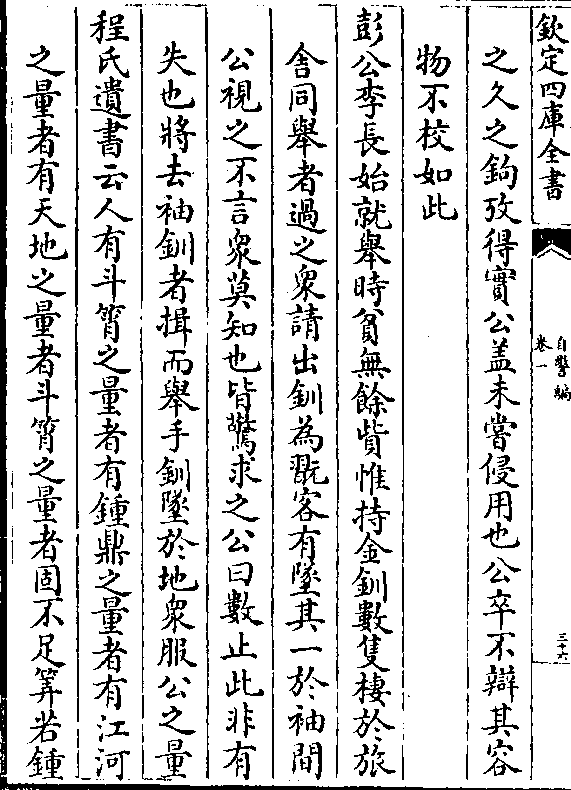 欽定四庫全書
自警編
卷一
三十六
之久之鉤攷得實公盖未嘗侵用也公卒不辯其容
物不校如此
彭公李長始就舉時貧無餘貲惟持金釧數隻棲於旅
舍同舉者過之衆請出釧為翫客有墜其一於袖間
公視之不言衆莫知也皆驚求之公曰數止此非有
失也將去袖釧者揖而舉手釧墜於地衆服公之量
程氏遺書云人有斗筲之量者有鍾鼎之量者有江河
之量者有天地之量者斗筲之量者固不足筭若鍾